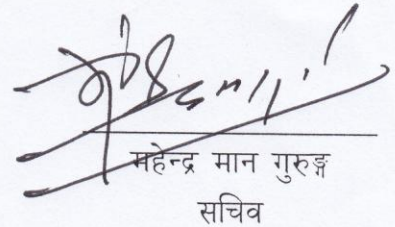 महेन्द्र मान गुरुङ्ग
सचिव